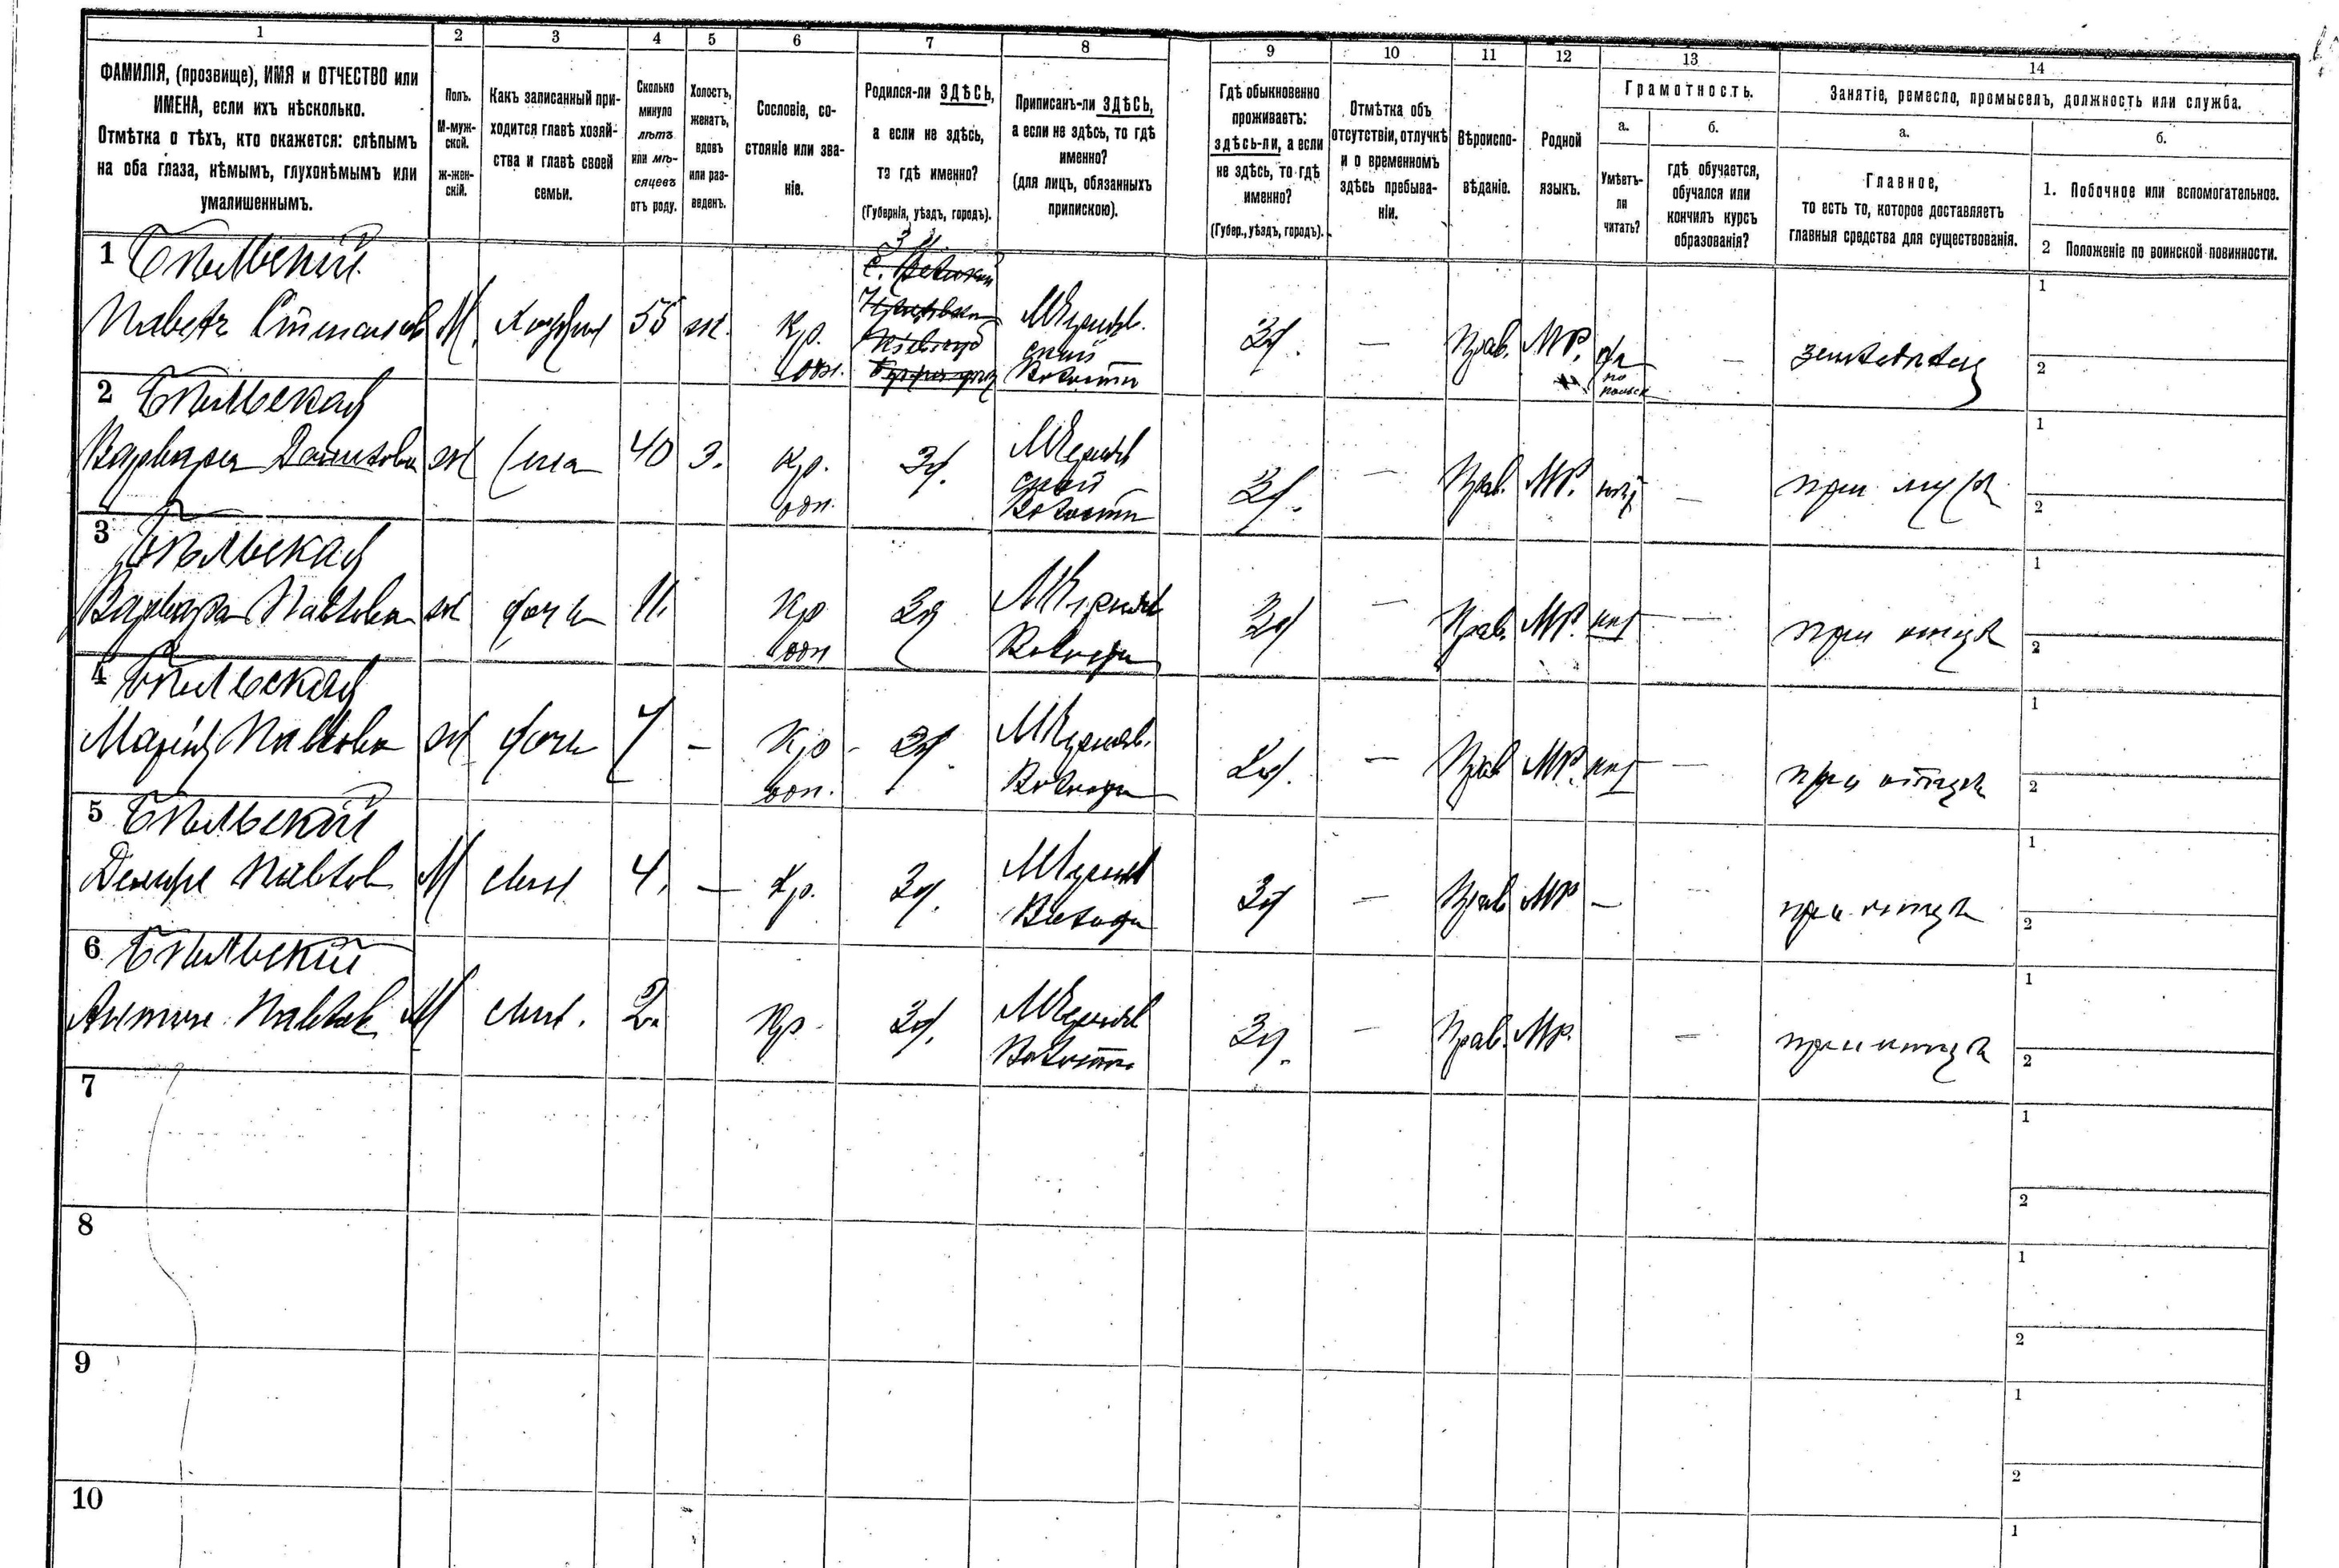 1 2 3 4 5 6 7 8 9 10 11 12 13 14
ФАМИЛІЯ, (прозвище), ИМЯ и ОТЧЕСТВО или
ИМЕНА, если ихъ нѣсколько.
Отмѣтка о тѣхъ, кто окажется: слѣпымъ
на оба глаза, нѣмымъ, глухонѣмымъ или
умалишеннымъ.
Полъ.
М-муж-
ской.
ж-жен-
скій.
Какъ записанный при-
ходится главѣ хозяй-
ства и главѣ своей
семьи.
Сколько
минуло
лѣтъ
или мѣ-
сяцевъ
отъ роду.
Холостъ,
женатъ,
вдовъ
или раз-
веденъ.
Сословіе, со-
стояніе или зва-
ніе.
Родился-ли ЗДѢСЬ,
а если не здѣсь,
то гдѣ именно?
(Губернія, уѣздъ, городъ).
Приписанъ-ли ЗДѢСЬ,
а если не здѣсь, то гдѣ
именно?
(для лицъ, обязанныхъ
припискою).
Гдѣ обыкновенно
проживаетъ:
здѣсь-ли, а если
не здѣсь, то гдѣ
именно?
(Губер., уѣздъ, городъ).
Отмѣтка объ
отсутствіи, отлучкѣ
и о временномъ
здѣсь пребыва-
ніи.
Вѣроиспо-
вѣданіе.
Родной
языкъ.
Грамотность.
а.
Умѣетъ-
ли
читать?
б.
гдѣ обучается,
обучался или
кончилъ курсъ
образованія?
Занятіе, ремесло, промыселъ, должность или служба.
а.
Главное,
то есть то, которое доставляетъ
главныя средства для существованія.
б.
1. Побочное или вспомогательное.
2 Положеніе по воинской повинности.
1 Бѣльскій
Павелъ М. 55 ж. Кр. Зд. — Прав. МР. да —
по
1
2
2 Бѣльская
Варвара ж 40 з. Кр. Зд. Зд. — Прав. МР. нѣт — при муж
Волости
1
2
3 Бѣльская
Варвара Павлова ж дочь 11. Кр Зд Зд — Прав. МР. нѣт — при отцѣ
1
2
4 Бѣльская
Марія Павлова ж дочь 7 — Кр Зд. Зд. — Прав МР. нѣт — при отцѣ
1
2
5 Бѣльскій
Павлов М сын 4. — Кр. Зд. Зд — Прав МР — — при отцѣ
1
2
6 Бѣльскій
Антон Павлов М сын. 2. Кр. Зд. Зд. — Прав. МР. — при отцѣ
Волости
1
2
7
1
2
8
1
2
9
1
2
10
1